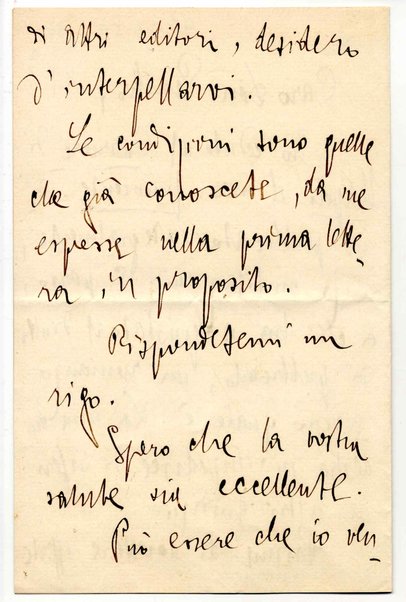 di altri editori, desidero
d'interpellarvi.
Le condizioni sono quelle
che già conoscete, da me
espresse nella prima lette-
ra in proposito.
Rispondetemi un
rigo.
Spero che la vostra
salute sia eccellente.
Può essere che io ven-